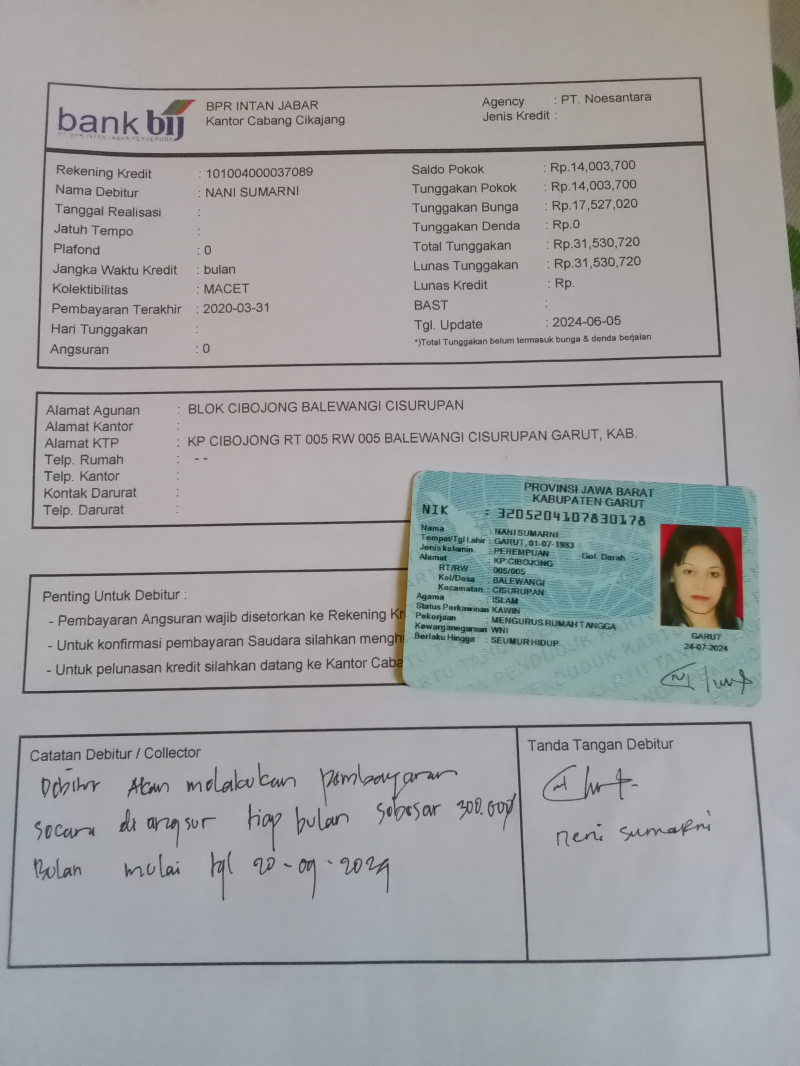 bank bij
BPR INTAN JABAR
Kantor Cabang Cikajang
Agency : PT. Noesantara
Jenis Kredit :
Rekening Kredit : 101004000037089
Nama Debitur : NANI SUMARNI
Tanggal Realisasi :
Jatuh Tempo :
Plafond : 0
Jangka Waktu Kredit : bulan
Kolektibilitas : MACET
Pembayaran Terakhir : 2020-03-31
Hari Tunggakan :
Angsuran : 0
Saldo Pokok : Rp.14,003,700
Tunggakan Pokok : Rp.14,003,700
Tunggakan Bunga : Rp.17,527,020
Tunggakan Denda : Rp.0
Total Tunggakan : Rp.31,530,720
Lunas Tunggakan : Rp.31,530,720
Lunas Kredit : Rp.
BAST :
Tgl. Update : 2024-06-05
*)Total Tunggakan belum termasuk bunga & denda berjalan
Alamat Agunan : BLOK CIBOJONG BALEWANGI CISURUPAN
Alamat Kantor :
Alamat KTP : KP CIBOJONG RT 005 RW 005 BALEWANGI CISURUPAN GARUT, KAB.
Telp. Rumah : - -
Telp. Kantor :
Kontak Darurat :
Telp. Darurat :
PROVINSI JAWA BARAT
KABUPATEN GARUT
NIK : 3205204107830178
Nama : NANI SUMARNI
Tempat/Tgl Lahir : GARUT, 01-07-1983
Jenis kelamin : PEREMPUAN Gol. Darah : -
Alamat : KP CIBOJONG
RT/RW : 005/005
Kel/Desa : BALEWANGI
Kecamatan : CISURUPAN
Agama : ISLAM
Status Perkawinan: KAWIN
Pekerjaan : MENGURUS RUMAH TANGGA
Kewarganegaraan: WNI
Berlaku Hingga : SEUMUR HIDUP
GARUT
24-07-2024
Penting Untuk Debitur :
- Pembayaran Angsuran wajib disetorkan ke Rekening
- Untuk konfirmasi pembayaran Saudara silahkan
- Untuk pelunasan kredit silahkan datang ke Kantor
Catatan Debitur / Collector
Debitur Akan melakukan pembayaran
secara di angsur tiap bulan sebesar 300.000/
Bulan mulai tgl 20-09-2024
Tanda Tangan Debitur
neni sumarni